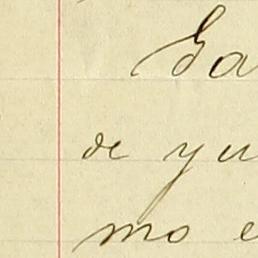 Sa
de yu
mo e